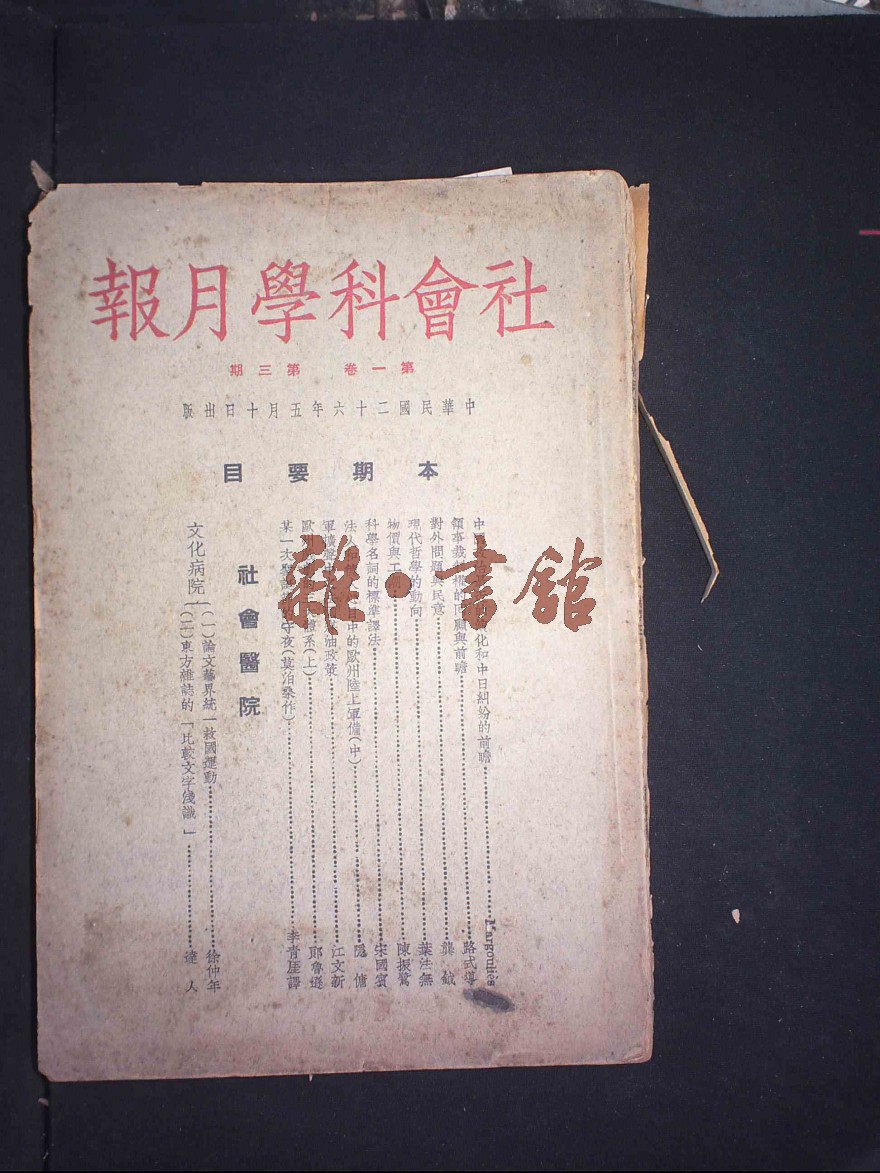 社會科學月報
第一卷 第三期
中華民國二十六年五月十日出版
本期要目
化和中日糾紛的前瞻 Margouliès
領事裁 權的回顧與前瞻 路式導
對外問題與民意 龔鉞
現代哲學的動向 葉法無
物價與工 陳振鷺
科學名詞的標準譯法 宋國賓
法人 中的歐州陸上軍備(中) 隱傭
軍擴聲 油政策 江文新
歐州 體系(上) 鄭魯遜
某一次 守夜(莫泊桑作) 李青崖譯
社會醫院
文化病院
(一)論文藝界統一救國運動 徐仲年
(二)東方雜誌的「比較文字淺識」 達人
雜·書館